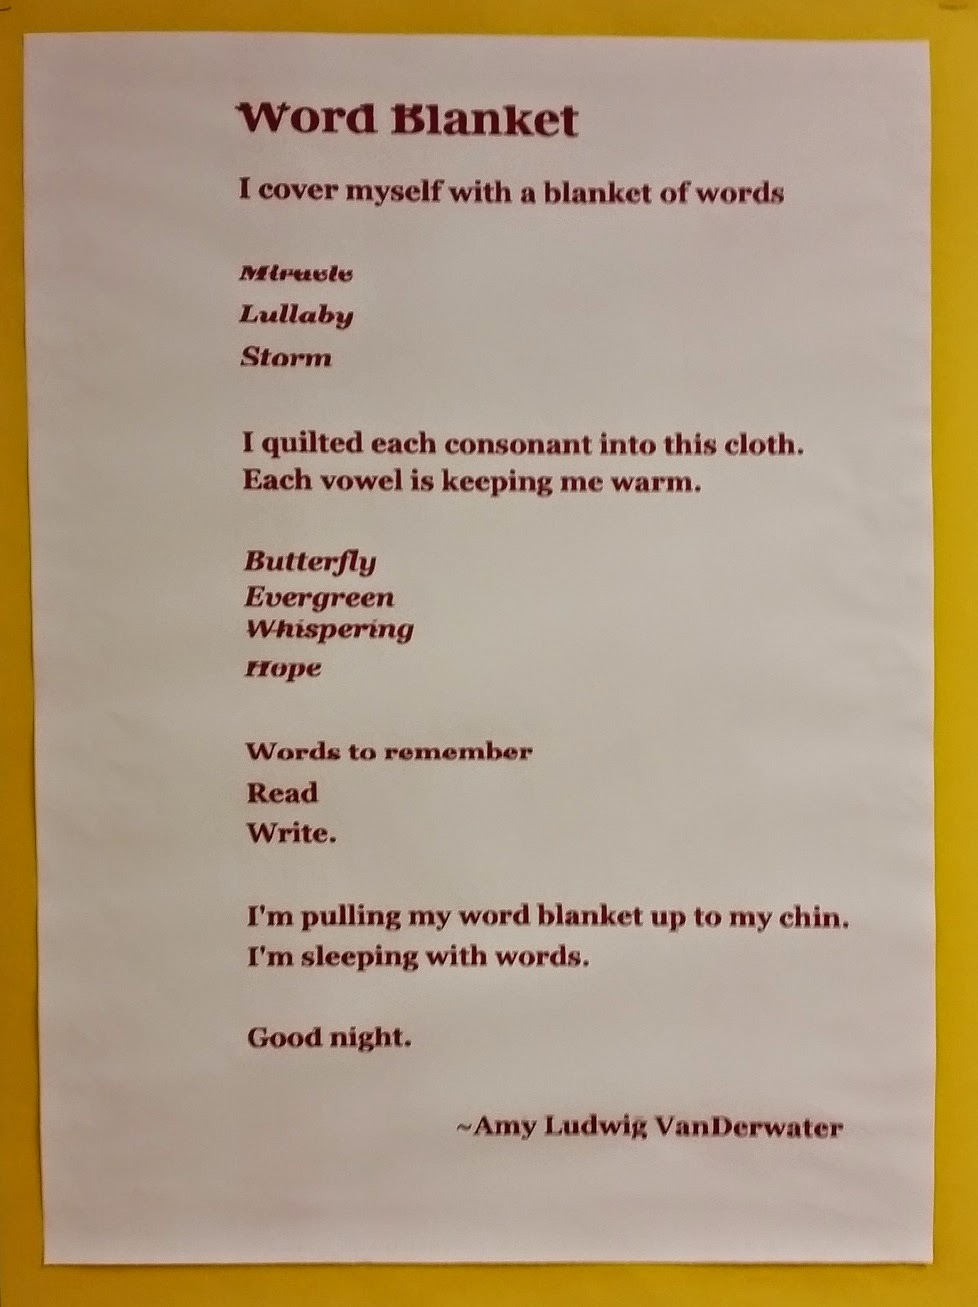 Word Blanket
I cover myself with a blanket of words
Miracle
Lullaby
Storm
I quilted each consonant into this cloth.
Each vowel is keeping me warm.
Butterfly
Evergreen
Whispering
Hope
Words to remember
Read
Write.
I'm pulling my word blanket up to my chin.
I'm sleeping with words.
Good night.
~Amy Ludwig VanDerwater